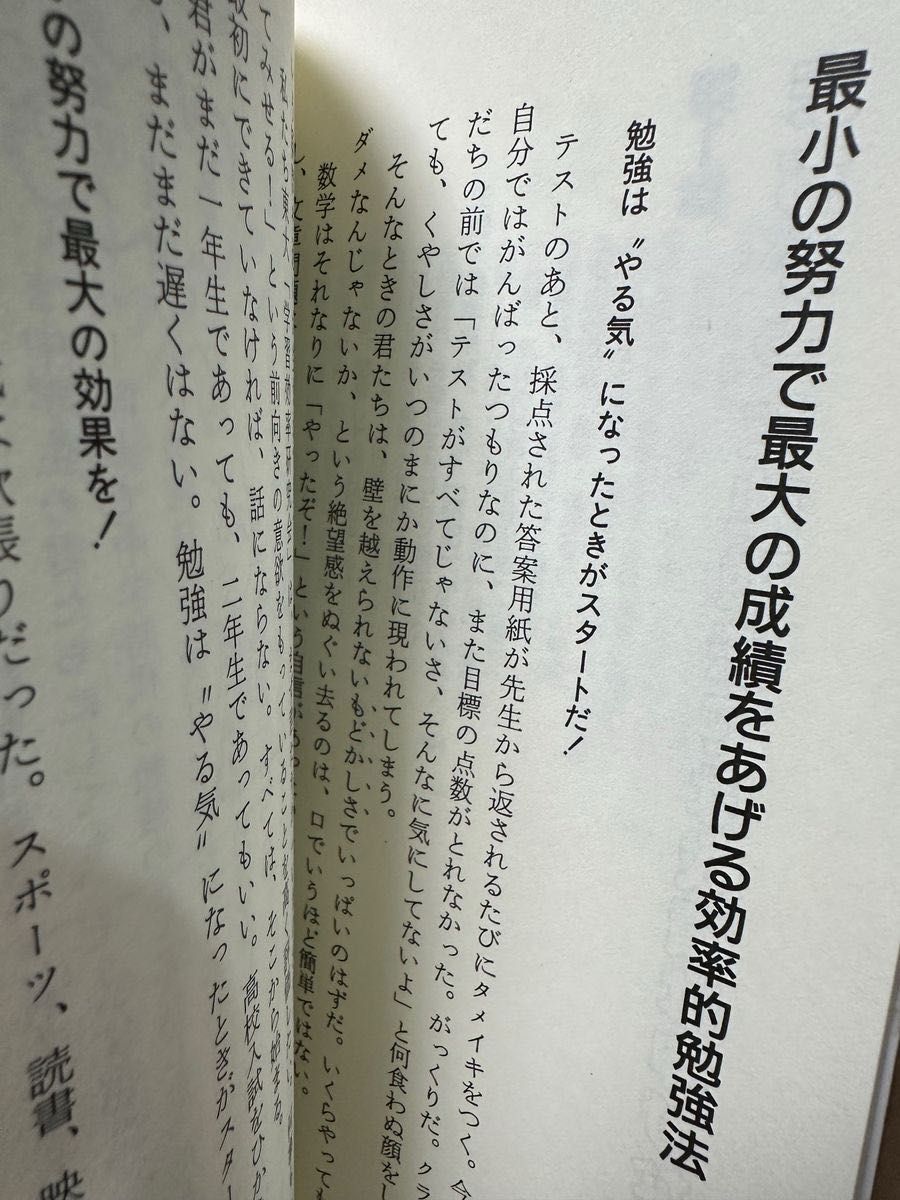 最小の努力で最大の成績をあげる効率的勉強法
勉強は〝やる気〟になったときがスタートだ！
テストのあと、採点された答案用紙が先生から返されるたびにタメイキをつく。今
自分ではがんばったつもりなのに、また目標の点数がとれなかった。がっくりだ。クラ
だちの前では「テストがすべてじゃないさ、そんなに気にしてないよ」と何食わぬ顔をし
ても、くやしさがいつのまにか動作に現われてしまう。
そんなときの君たちは、壁を越えられないもどかしさでいっぱいのはずだ。いくらやっても
ダメなんじゃないか、という絶望感をぬぐい去るのは、口でいうほど簡単ではない。
数学はそれなりに「やったぞ！」という自信があっ
てみせる！」という前向きの意欲をもっていること
最初にできていなければ、話にならない。すべては、そこから始まる。
君がまだ一年生であっても、二年生であってもいい。高校入試をひか
い、まだまだ遅くはない。勉強は〝やる気〟になったときがスター
の努力で最大の効果を！
張りだった。スポーツ、読書、映